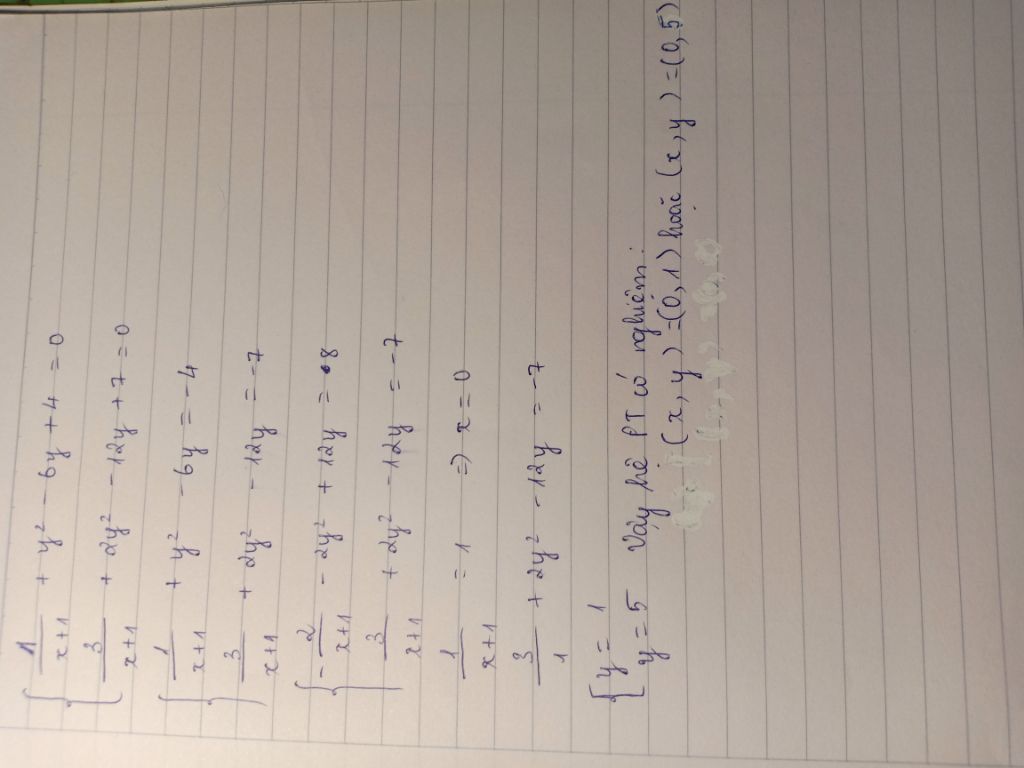 1/(x+1) + y² - 6y + 4 = 0
3/(x+1) + 2y² - 12y + 7 = 0
1/(x+1) + y² - 6y = -4
3/(x+1) + 2y² - 12y = -7
-2/(x+1) - 2y² + 12y = 8
3/(x+1) + 2y² - 12y = -7
1/(x+1) = 1 => x = 0
3/1 + 2y² - 12y = -7
y = 1
y = 5 Vậy hệ PT có nghiệm:
(x, y) = (0, 1) hoặc (x, y) = (0, 5)